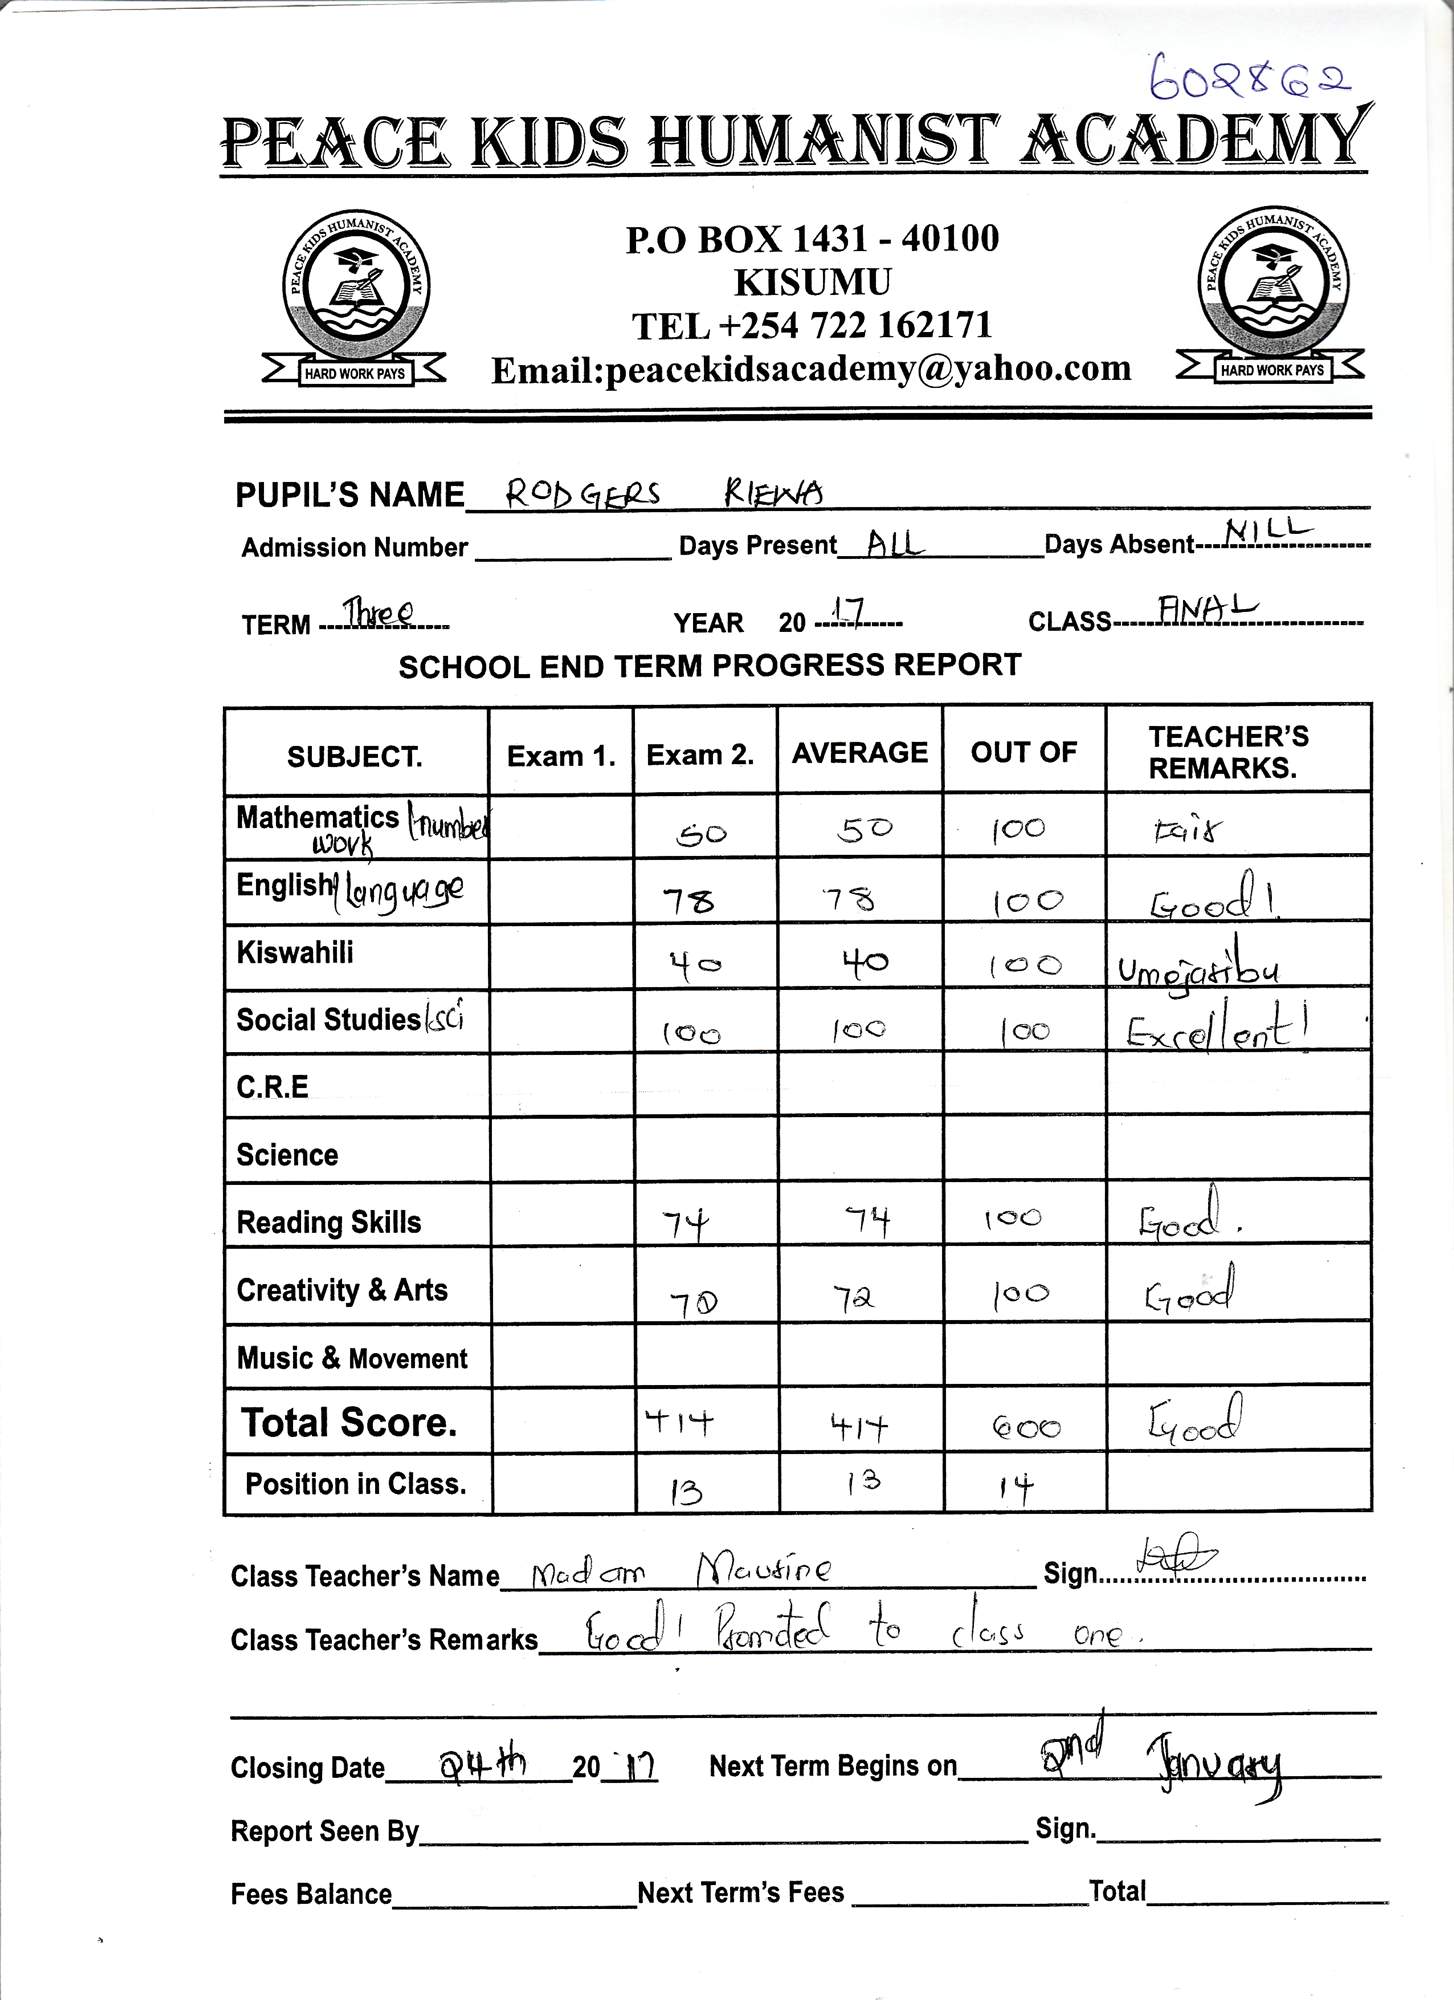 602862
PEACE KIDS HUMANIST ACADEMY
PEACE KIDS HUMANIST ACADEMY
HARD WORK PAYS
P.O BOX 1431 - 40100
KISUMU
TEL +254 722 162171
Email:peacekidsacademy@yahoo.com
PEACE KIDS HUMANIST ACADEMY
HARD WORK PAYS
PUPIL'S NAME RODGERS RIEWA
Admission Number Days Present ALL Days Absent NILL
TERM Three YEAR 20 17 CLASS FINAL
SCHOOL END TERM PROGRESS REPORT
SUBJECT. Exam 1. Exam 2. AVERAGE OUT OF TEACHER'S REMARKS.
Mathematics /number work 50 50 100 Fair
English/language 78 78 100 Good!
Kiswahili 40 40 100 Umejaribu
Social Studies/sci 100 100 100 Excellent!
C.R.E
Science
Reading Skills 74 74 100 Good.
Creativity & Arts 72 100 Good
Music & Movement
Total Score. 414 414 600 Good
Position in Class. 13 13 14
Class Teacher's Name Madam Maurine Sign
Class Teacher's Remarks Good! Promoted to class one.
Closing Date 24th 20 17 Next Term Begins on 2nd January
Report Seen By Sign.
Fees Balance Next Term's Fees Total